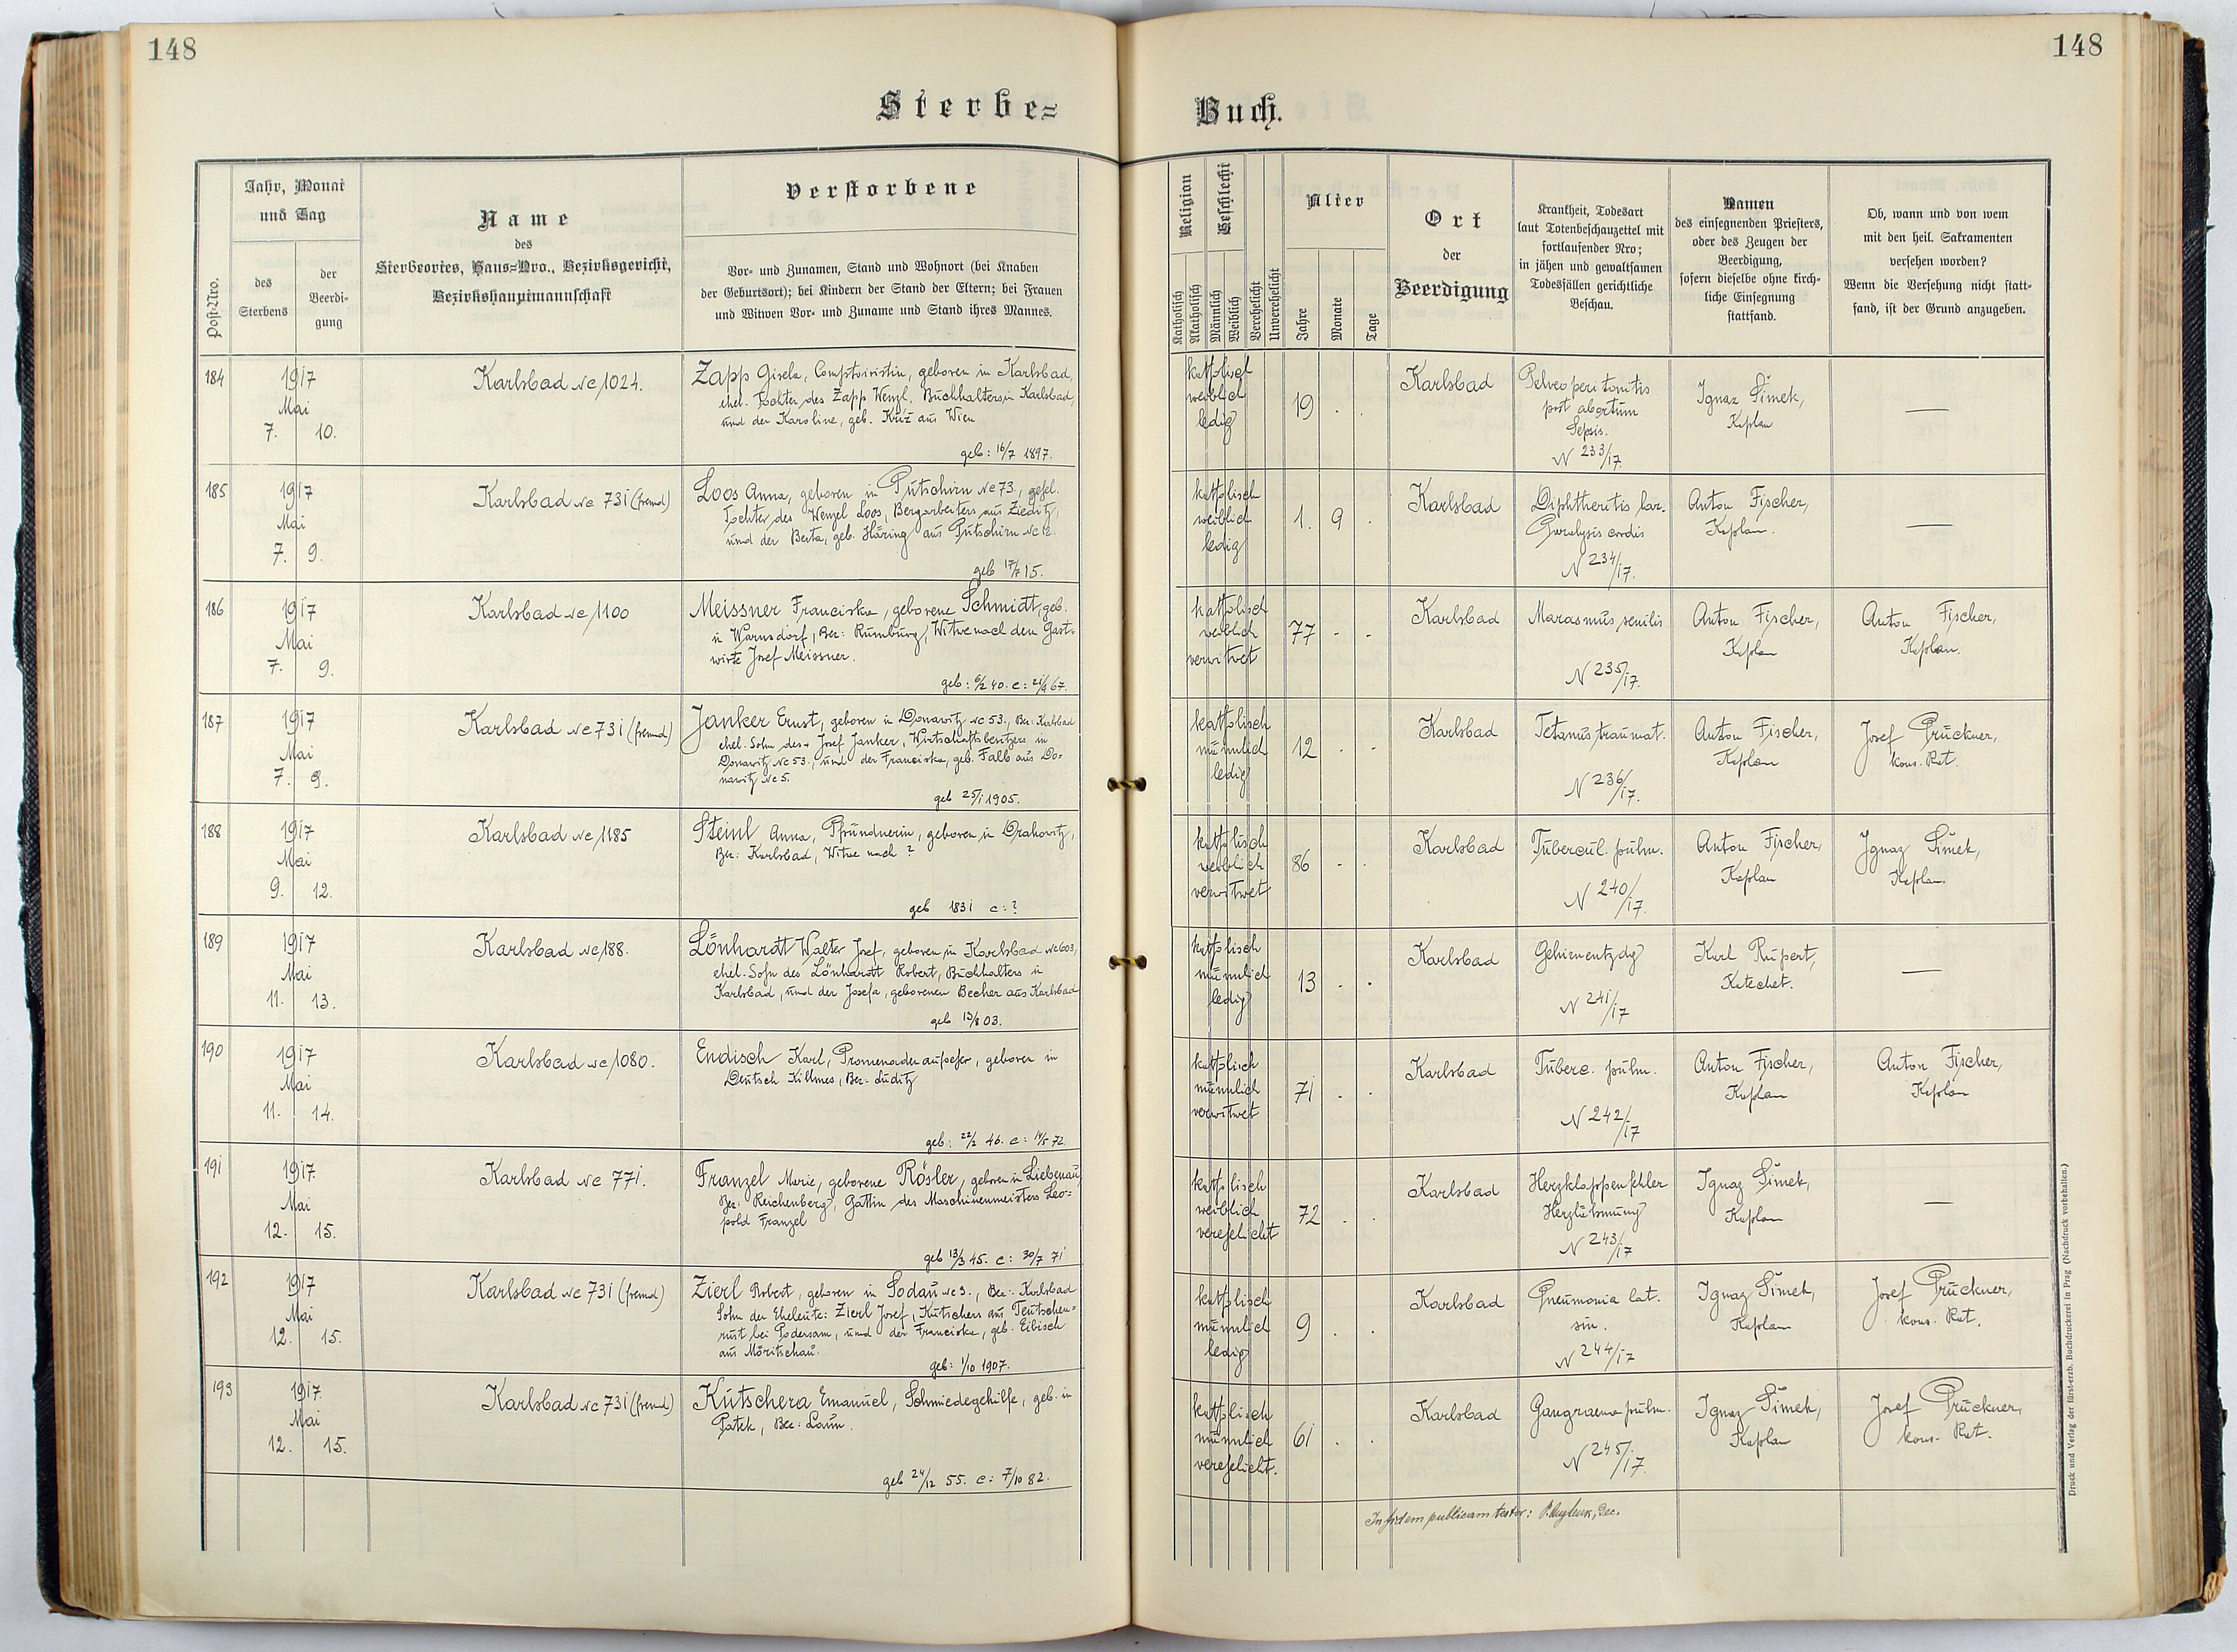 148
148
Sterbe=
Buch.
Post-Nro.
Jahr, Monat
und Tag
des
Sterbens
der
Beerdi-
gung
Name
des
Sterbeortes, Haus=Nro., Bezirksgericht,
Bezirkshauptmannschaft
Verstorbene
Vor- und Zunamen, Stand und Wohnort (bei Knaben
der Geburtsort); bei Kindern der Stand der Eltern; bei Frauen
und Witwen Vor- und Zuname und Stand ihres Mannes.
Religion
Katholisch
Akatholisch
Geschlecht
Männlich
Weiblich
Verehelicht
Unverehelicht
Alter
Jahre
Monate
Tage
Ort
der
Beerdigung
Krankheit, Todesart
laut Totenbeschauzettel mit
fortlaufender Nro;
in jähen und gewaltsamen
Todesfällen gerichtliche
Beschau.
Namen
des einsegnenden Priesters,
oder des Zeugen der
Beerdigung,
sofern dieselbe ohne kirch-
liche Einsegnung
stattfand.
Ob, wann und von wem
mit den heil. Sakramenten
versehen worden?
Wenn die Versehung nicht statt-
fand, ist der Grund anzugeben.
184
1917
Mai
7. 10.
Karlsbad Nc 1024.
Zapp Gisela, Comptoiristin, geboren in Karlsbad,
ehel. Tochter des Zapp Wenzl, Buchhalters in Karlsbad,
und der Karoline, geb. Kříž aus Wien
geb: 16/7 1897.
katholisch
weiblich
ledig
19 . .
Karlsbad
Pelveoperitonitis
post abortum
Sepsis.
N 233/17.
Ignaz Šimek,
Kaplan
—
185
1917
Mai
7. 9.
Karlsbad Nc 731 (fremd)
Loos Anna, geboren in Putschirn Nc 73, ehel.
Tochter des Wenzel Loos, Bergarbeiters aus Zieditz,
und der Berta, geb. Häring aus Putschirn Nc 12.
geb 17/7 15.
katholisch
weiblich
ledig
1. 9 .
Karlsbad
Diphtheritis lar.
Paralysis cordis
N 234/17.
Anton Fischer,
Kaplan.
—
186
1917
Mai
7. 9.
Karlsbad Nc 1100
Meissner Franciska, geborene Schmidt, geb.
in Warnsdorf, Bez: Rumburg, Witwe nach dem Gast-
wirte Josef Meissner.
geb: 6/2 40. c: 21/4 67.
katholisch
weiblich
verwitwet
77 . .
Karlsbad
Marasmus senilis
N 235/17.
Anton Fischer,
Kaplan
Anton Fischer,
Kaplan.
187
1917
Mai
7. 9.
Karlsbad Nc 731 (fremd)
Janker Ernst, geboren in Donawitz Nc 53., Bez: Karlsbad
ehel. Sohn des Josef Janker, Wirtschaftsbesitzers in
Donawitz Nc 53., und der Franciska, geb. Falb aus Do-
nawitz Nc 5.
geb 25/1 1905.
katholisch
männlich
ledig
12 . .
Karlsbad
Tetanus traumat.
N 236/17.
Anton Fischer,
Kaplan
Josef Pruckner,
kons. Rat.
188
1917
Mai
9. 12.
Karlsbad Nc 1185
Steinl Anna, Pfründnerin, geboren in Drahowitz,
Bez: Karlsbad, Witwe nach ?
geb 1831 c: ?
katholisch
weiblich
verwitwet
86 . .
Karlsbad
Tubercul. pulm.
N 240/17.
Anton Fischer,
Kaplan
Ignaz Šimek,
Kaplan.
189
1917
Mai
11. 13.
Karlsbad Nc 188.
Lönhardt Walter Josef, geboren in Karlsbad Nc 603,
ehel. Sohn des Lönhardt Robert, Buchhalters in
Karlsbad, und der Josefa, geborenen Becher aus Karlsbad
geb 13/8 03.
katholisch
männlich
ledig
13 . .
Karlsbad
Gehirnentzdg
N 241/17
Karl Rupert,
Katechet.
—
190
1917
Mai
11. 14.
Karlsbad Nc 1080.
Endisch Karl, Promenadenaufseher, geboren in
Deutsch Killmes, Bez. Luditz
geb: 22/2 46. c: 14/5 72.
katholisch
männlich
verwitwet
71 . .
Karlsbad
Tuberc. pulm.
N 242/17
Anton Fischer,
Kaplan
Anton Fischer,
Kaplan
191
1917.
Mai
12. 15.
Karlsbad Nc 771.
Franzel Marie, geborene Rösler, geboren in Liebenau,
Bez: Reichenberg, Gattin des Maschinenmeisters Leo=
pold Franzel
geb 13/3 45. c: 30/7 71
katholisch
weiblich
verehelicht
72 . .
Karlsbad
Herzklappenfehler
Herzlähmung
N 243/17
Ignaz Šimek,
Kaplan
—
192
1917
Mai
12. 15.
Karlsbad Nc 731 (fremd)
Zierl Robert, geboren in Sodau Nc 3., Bez: Karlsbad
Sohn der Eheleute: Zierl Josef, Kutschers aus Teutschen=
rust bei Podersam, und der Franciska, geb. Eibisch
aus Möritschau.
geb: 1/10 1907.
katholisch
männlich
ledig
9 . .
Karlsbad
Pneumonia lat.
sin.
N 244/17
Ignaz Šimek,
Kaplan
Josef Pruckner,
kons. Rat.
193
1917.
Mai
12. 15.
Karlsbad Nc 731 (fremd)
Kutschera Emanuel, Schmiedegehilfe, geb. in
Patek, Bez: Laun.
geb 24/12 55. c: 7/10 82.
katholisch
männlich
verehelicht.
61 . .
Karlsbad
Gangraena pulm.
N 245/17.
Ignaz Šimek,
Kaplan
Josef Pruckner,
kons. Rat.
In fidem publicam testor:
Druck und Verlag der fürst-erzb. Buchdruckerei in Prag (Nachdruck vorbehalten.)